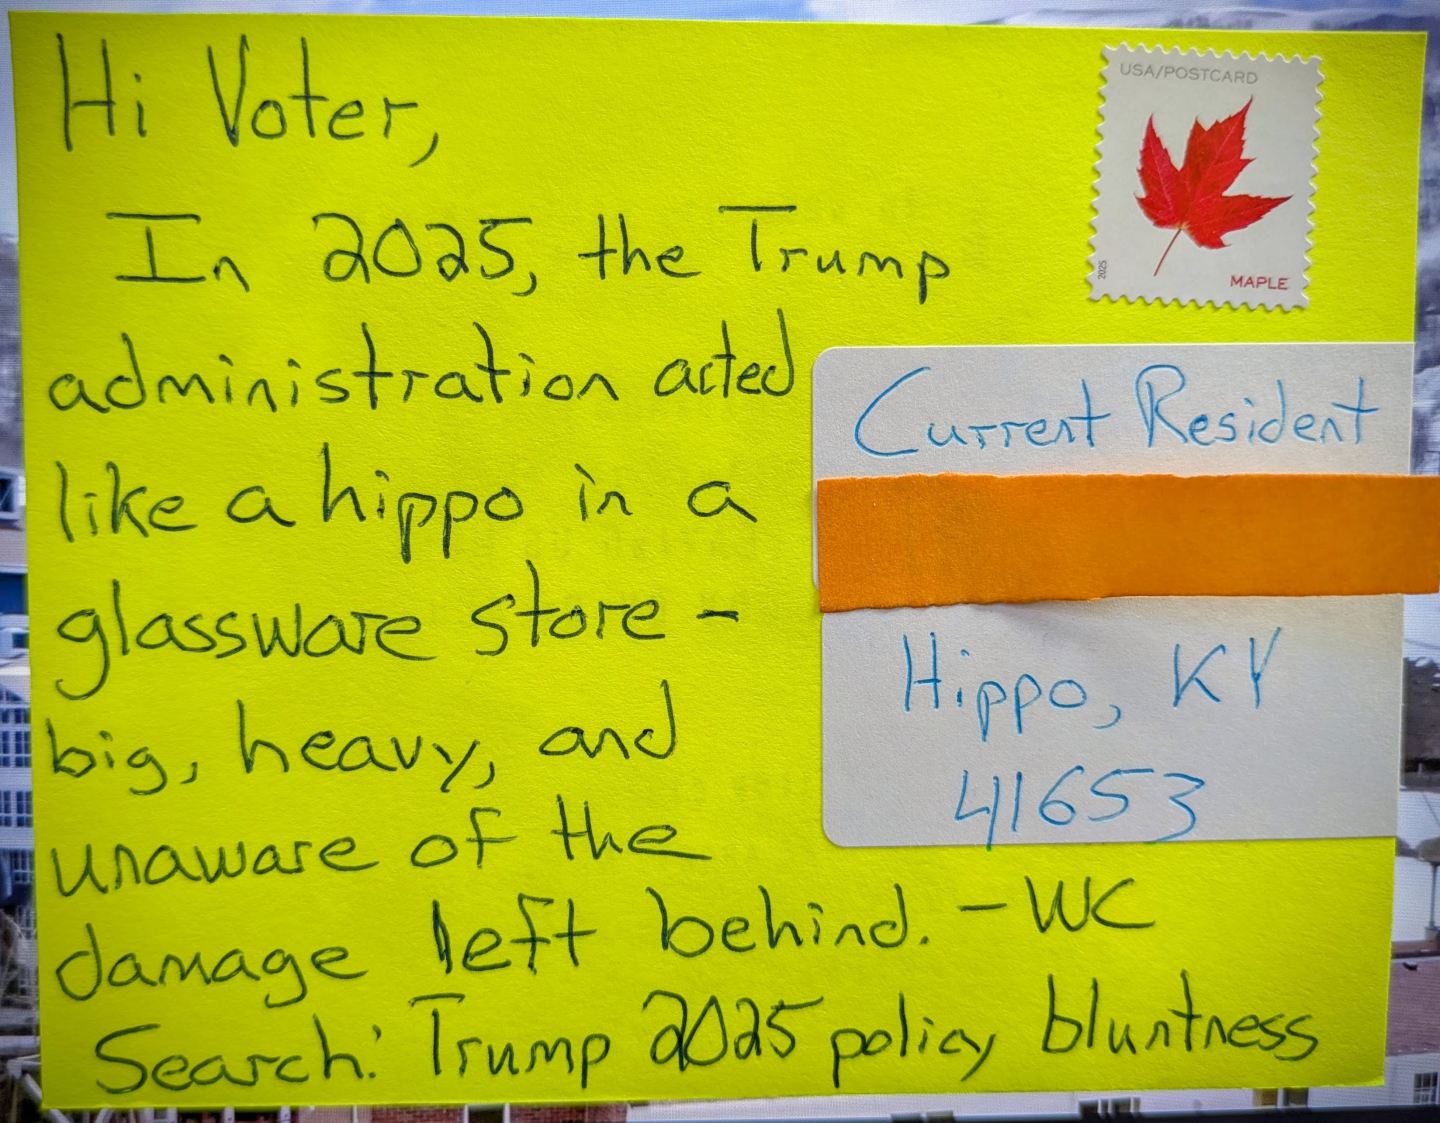 Hi Voter,
In 2025, the Trump
administration acted
like a hippo in a
glassware store -
big, heavy, and
unaware of the
damage left behind. - WC
Search: Trump 2025 policy bluntness
USA/POSTCARD
2025
MAPLE
Current Resident
Hippo, KY
41653